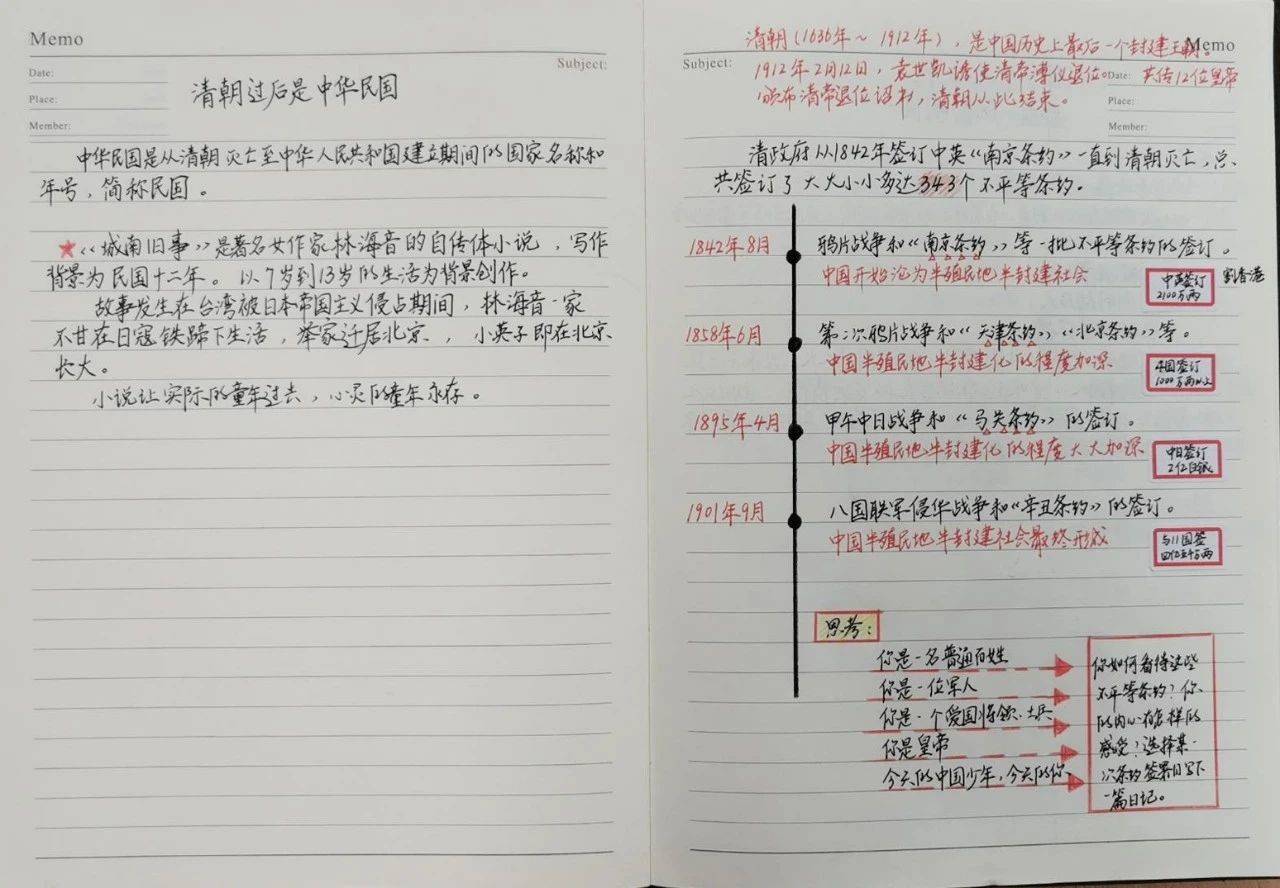 Memo
Date:
Subject:
Place:
Member:
清朝过后是中华民国
中华民国是从清朝灭亡至中华人民共和国建立期间的国家名称和
年号，简称民国。
★《城南旧事》是著名女作家林海音的自传体小说，写作
背景为民国十二年。以7岁到13岁的生活为背景创作。
故事发生在台湾被日本帝国主义侵占期间，林海音一家
不甘在日寇铁蹄下生活，举家迁居北京，，小英子即在北京
长大。
小说让实际的童年过去，心灵的童年永存。
Memo
Subject:
Date:
Place:
Member:
清朝（1636年～1912年），是中国历史上最后一个封建王朝。
1912年2月12日，袁世凯诱使清帝溥仪退位。共传12位皇帝
颁布清帝退位诏书，清朝从此结束。
清政府从1842年签订中英《南京条约》一直到清朝灭亡，总
共签订了大大小小多达343个不平等条约。
1842年8月
鸦片战争和《南京条约》等一批不平等条约的签订。
中国开始沦为半殖民地半封建社会
中英签订
2100万两
割香港
1858年6月
第二次鸦片战争和《天津条约》、《北京条约》等。
中国半殖民地半封建化的程度加深
4国签订
1000万两以上
1895年4月
甲午中日战争和《马关条约》的签订。
中国半殖民地半封建化的程度大大加深
中日签订
2亿白银
1901年9月
八国联军侵华战争和《辛丑条约》的签订。
中国半殖民地半封建社会最终形成
与11国签
四亿五千万两
思考：
你是一名普通百姓
你是一位军人
你是一个爱国将领、士兵
你是皇帝
今天的中国少年，今天的你、
你如何看待这些
不平等条约？你
的内心有怎样的
感受？选择某一
次条约签署日写下
一篇日记。